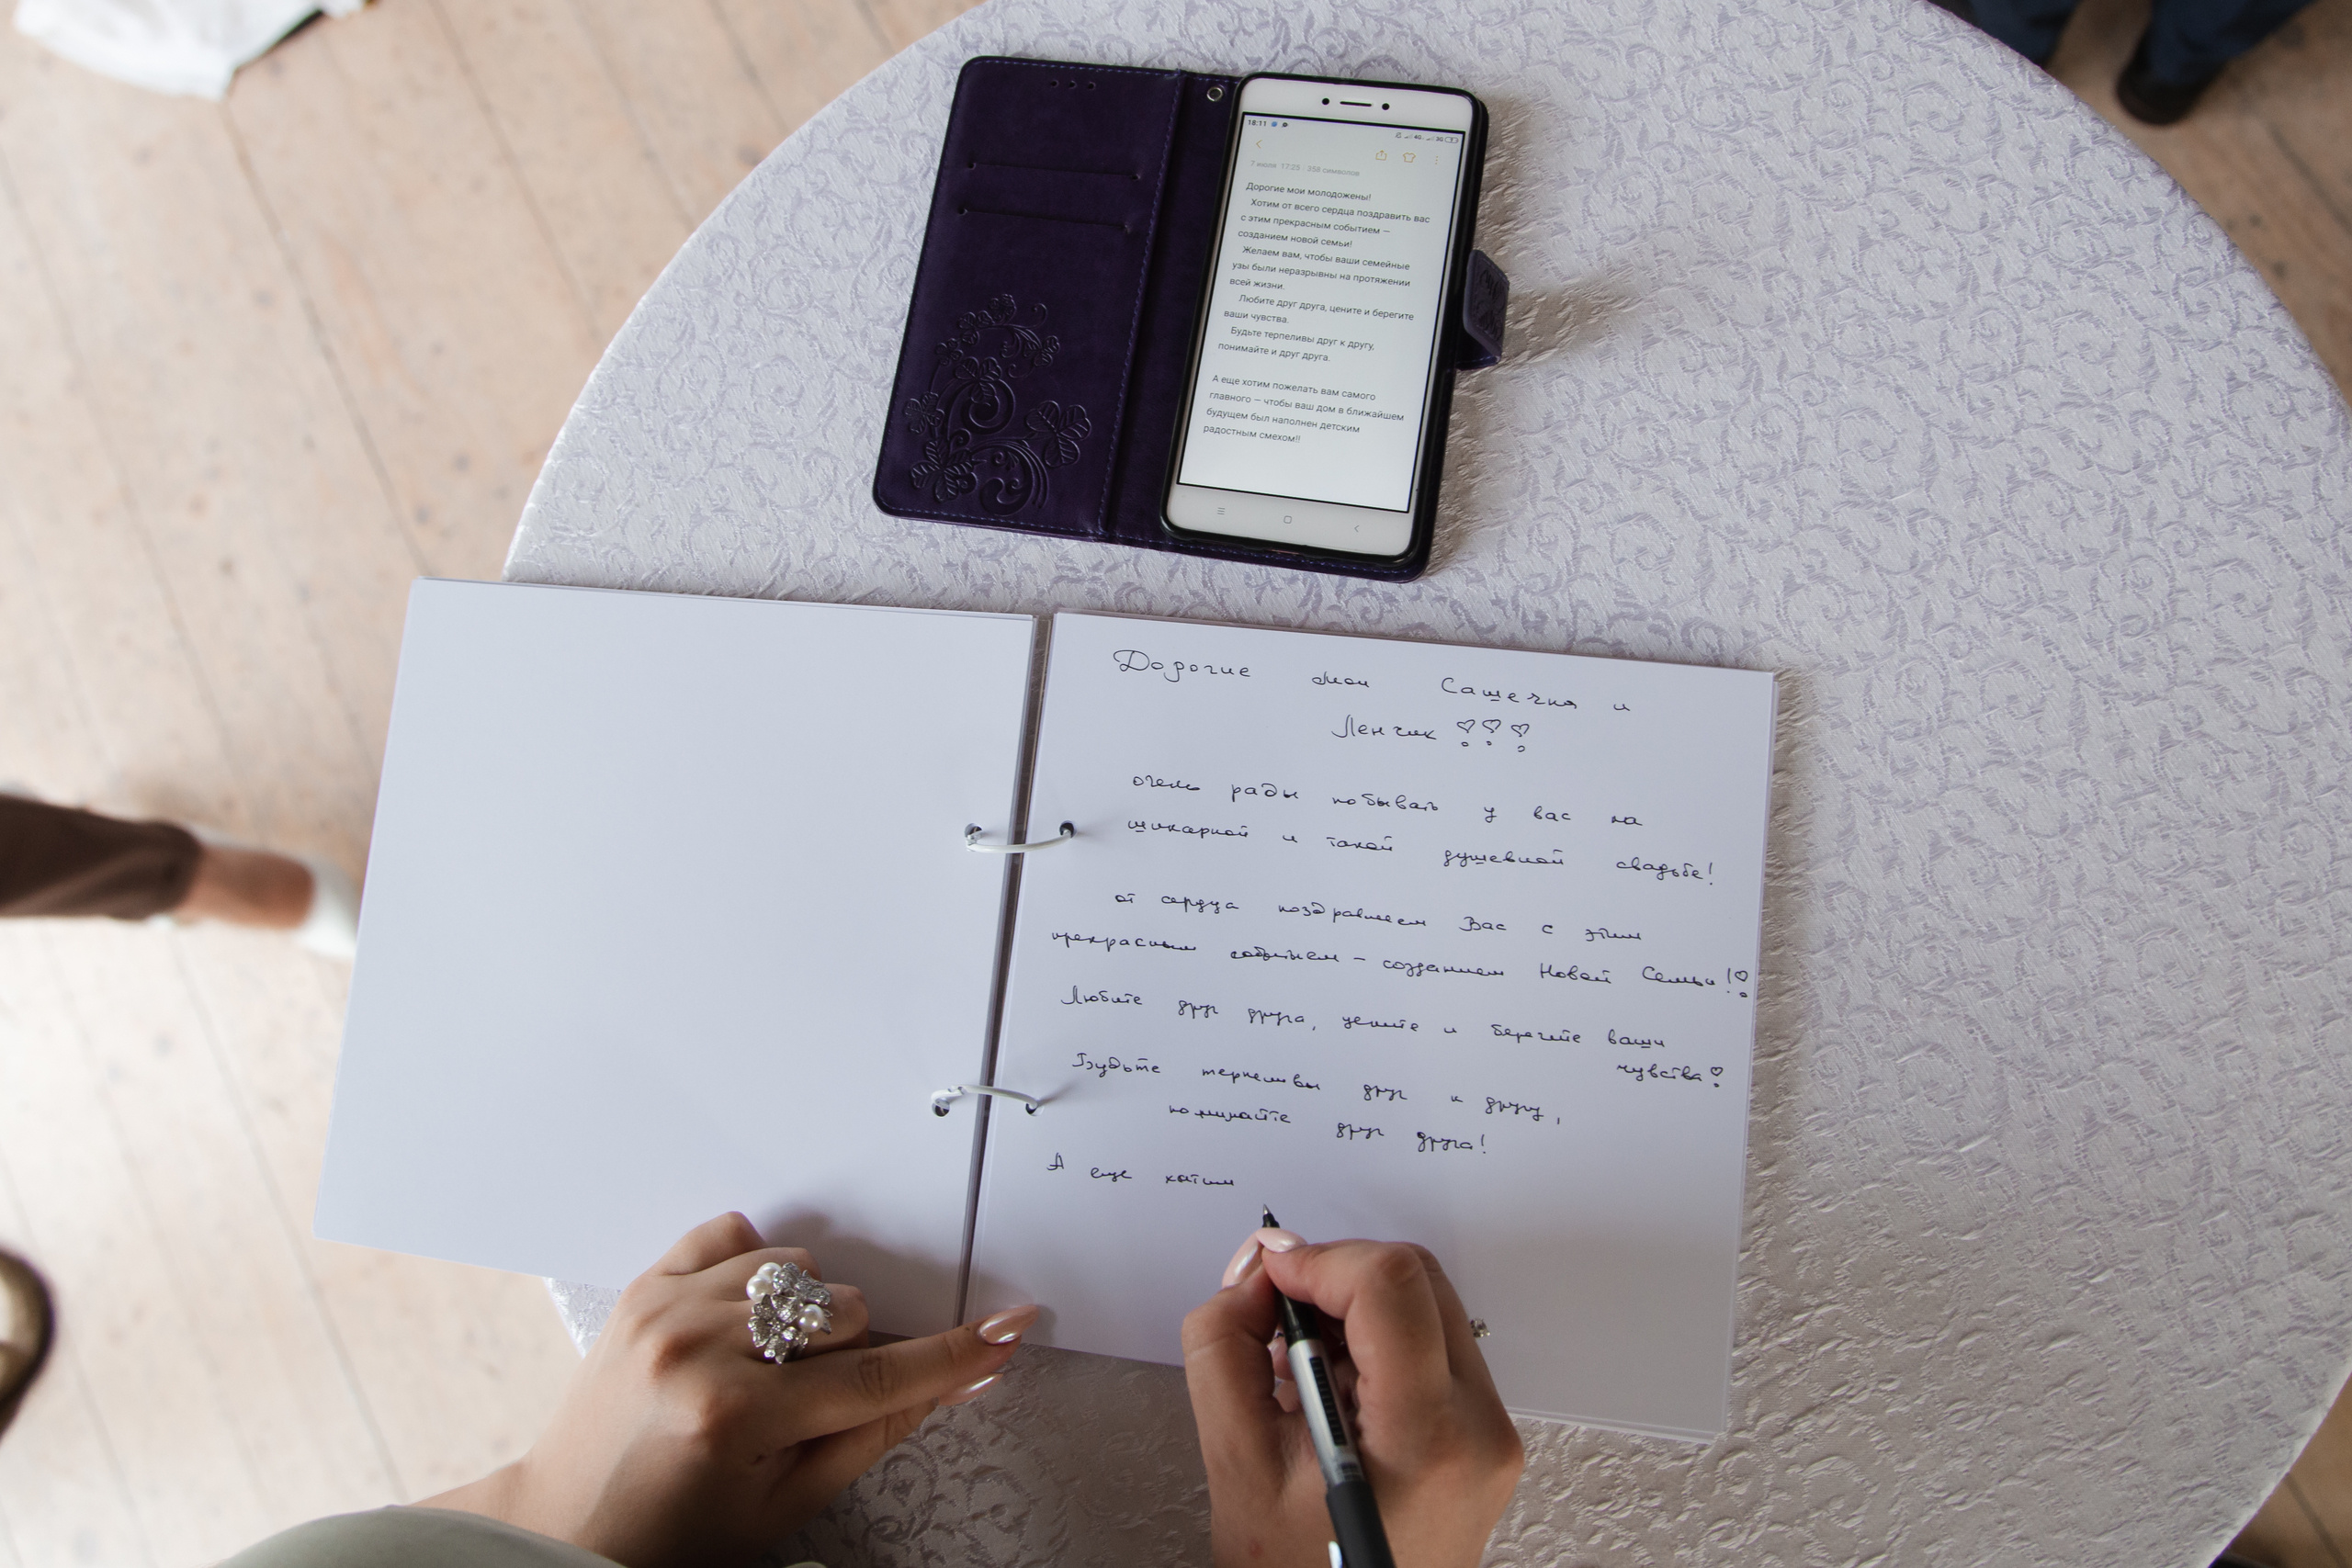 18:11
7 июля 17:25 358 символов
Дорогие мои молодожены!
Хотим от всего сердца поздравить вас
с этим прекрасным событием —
созданием новой семьи!
Желаем вам, чтобы ваши семейные
узы были неразрывны на протяжении
всей жизни.
Любите друг друга, цените и берегите
ваши чувства.
Будьте терпеливы друг к другу,
понимайте и друг друга.
А еще хотим пожелать вам самого
главного — чтобы ваш дом в ближайшем
будущем был наполнен детским
радостным смехом!!
Дорогие мои Сашечка и
Ленчик
очень рады побывать у вас на
шикарной и такой душевной свадьбе!
от сердца поздравляем Вас с этим
прекрасным событием – созданием Новой Семьи!
Любите друг друга, цените и берегите ваши
чувства
Будьте терпеливы друг к другу,
понимайте друг друга!
А еще хотим